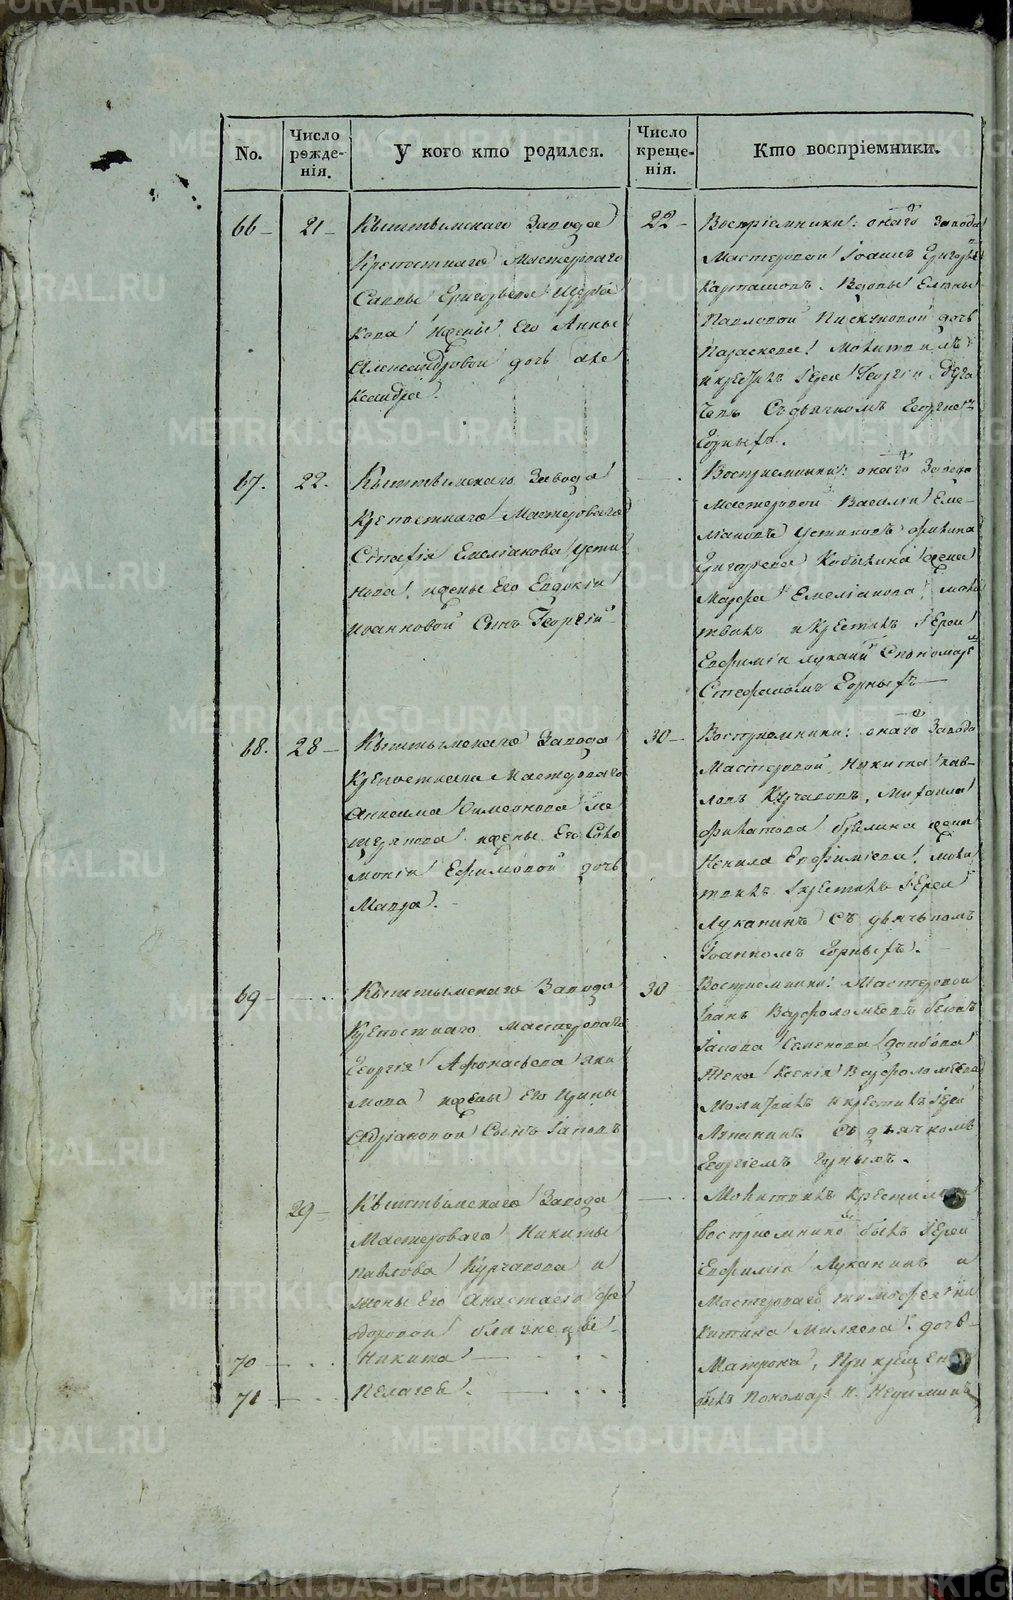 No.
Число рожде-нія.
У кого кто родился.
Число креще-нія.
Кто воспріемники.
66 21 Кыштымскаго Завода
Крѣпостнаго Мастероваго
Саввы Григорьева
кова жены Его Анны
Александровой дочь Але
ксандра.
22 Воспріемники: онаго Завода
Мастеровой Іоаннъ Григорьевъ
Карташовъ. Вдовы Елены
Павловой Пискуновой дочь
Параскева! Молитвилъ
и крестилъ Іерей Георгій
съ дьячкомъ Георгіемъ
Горныхъ.
67. 22. Кыштымскаго Завода
Крѣпостнаго Мастероваго
Емеліанова Усти
нова, жены Его Евдокіи
Иоанновой Сынъ Георгій
Воспріемники: онаго Завода
Мастеровой Василій Еме-
ліановъ Устиновъ
Григорьева жена
Марфа Емеліанова, моли
твилъ и крестилъ Іерей
Евфимій Луканин Спономарем
Стефаномъ Горныхъ
68. 28 Кыштымскаго Завода
Крѣпостнаго Мастероваго
Анисима Симеонова Ме
щерякова жены Его Соло
моніи Ефимовой дочь
Мавра.
30 Воспріемники: онаго Завода
Мастеровой Никита Пав-
ловъ Курчавовъ, Михаила
Филатова жена
Ненила Евфиміева, моли
твилъ и крестилъ Іерей
Луканинъ съ дьячькомъ
Іоанномъ Горныхъ.
69 Кыштымскаго Завода
Крѣпостнаго Мастероваго
Георгія Афонасьева Яки
мова жены Его Ирины
Адріановой Сынъ Іаковъ
30 Воспріемники: Мастеровой
Іванъ Варфоломѣевъ
Іакова Семенова
жена Ксенія Варфоломѣева
Молитвилъ и крестилъ Іерей
Луканинъ съ дьячкомъ
Георгіемъ Горныхъ.
29 Кыштымскаго Завода
Мастероваго Никиты
Павлова Курчавова и
жены Его Анастасіи Фе
доровой близнецы
70 Никита
71 Пелагея.
Молитвилъ крестилъ и
воспріемникомъ былъ Іерей
Евфимій Луканинъ и
Мастероваго Тимофея Ни
китина Миляева дочь
Матрона, При крещеніи
былъ Пономарь
METRIKI.GASO-URAL.RU